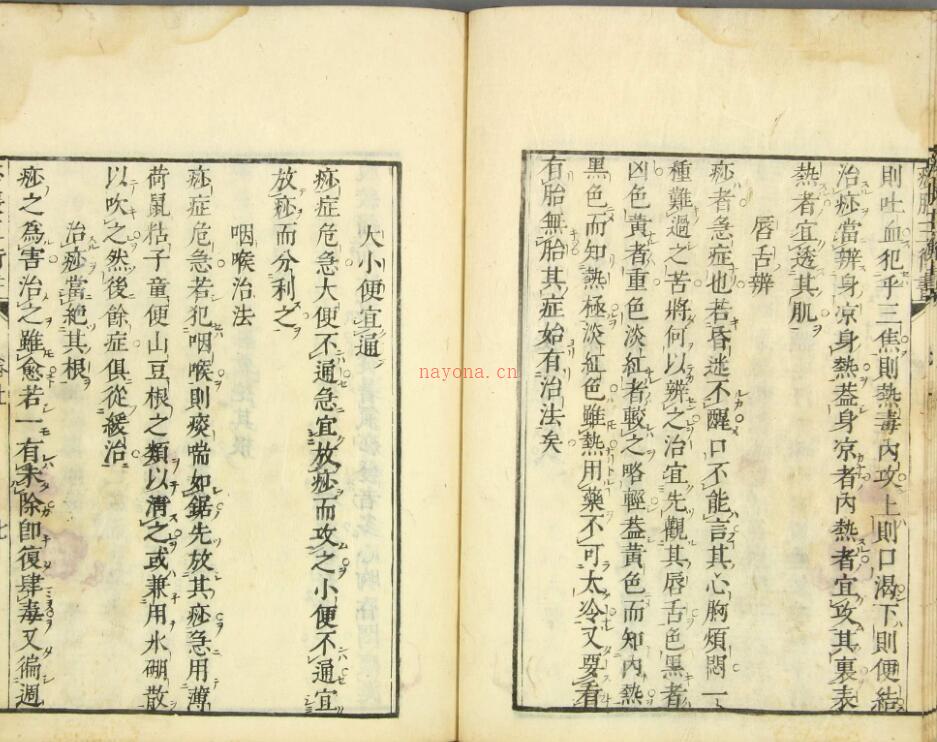 則吐血犯乎三焦則熱毒內攻上則口渴下則便結
治痧當辨身凉身熱葢身凉者內熱者宜攻其裏表
熱者宜透其肌
唇舌辨
痧者急症也若昏迷不醒口不能言其心胸煩悶一
種難過之苦將何以辨之治宜先觀其唇舌色黑者
凶色黃者重色淡紅者較之略輕葢黃色而知內熱
黑色而知熱極淡紅色雖熱用藥不可太冷又要看
有胎無胎其症始有治法矣
大小便宜通
痧症危急大便不通急宜放痧而攻之小便不通宜
放痧而分利之
咽喉治法
痧症危急若犯咽喉則痰喘如鋸先放其痧急用薄
荷鼠粘子童便山豆根之類以清之或兼用氷硼散
以吹之然後餘症俱從緩治
治痧當絕其根
痧之為害治之雖愈若一有未除卽復肆毒又徧週
七
nayona.cn